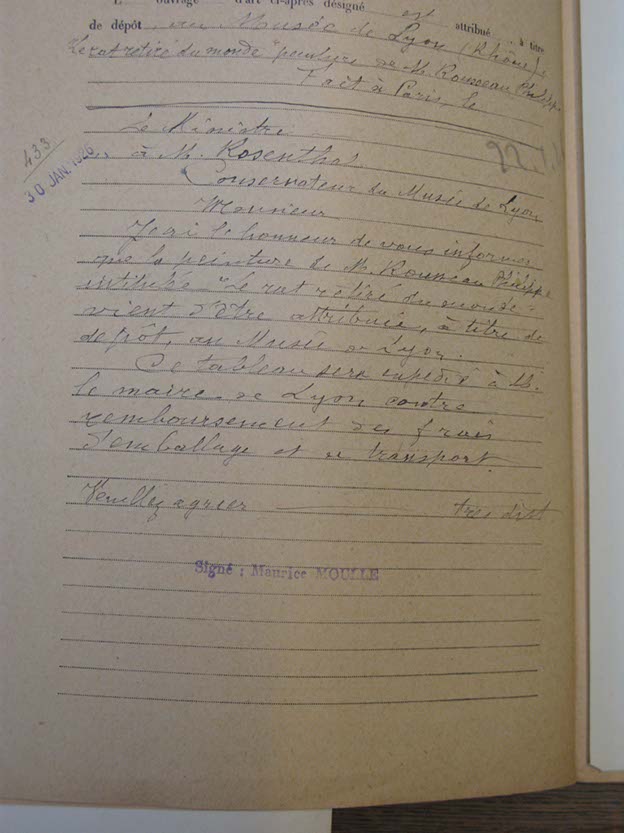 L' ouvrage d'art ci-après désigné est attribué à titre
de dépôt, au Musée de Lyon (Rhône),
Le rat retiré du monde" peinture de M. Rousseau Philippe
Fait à Paris, le
433
30 JAN. 1926
Le Ministre
à M. Rosenthal
Conservateur du Musée de Lyon
Monsieur
J'ai le honneur de vous informer
que la peinture de M. Rousseau Philippe
intitulée "Le rat retiré du monde"
vient d'être attribuée, à titre de
dépôt, au Musée de Lyon.
Ce tableau sera expédié à M.
le maire de Lyon contre
remboursement des frais
d'emballage et de transport.
Veuillez agréer très dist
Signé : Maurice MOULLÉ